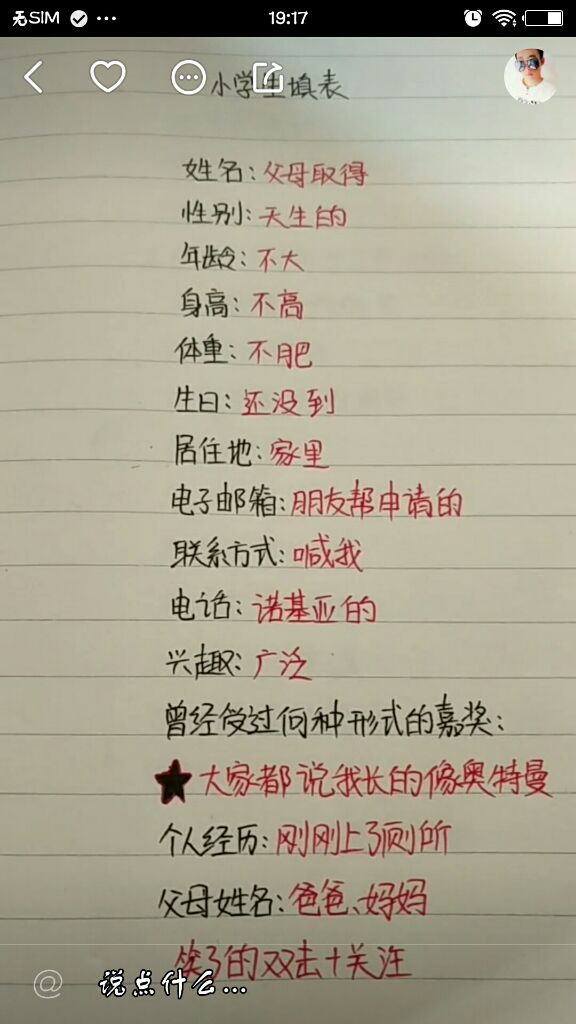 无SIM 19:17
小学生填表
姓名:父母取得
性别:天生的
年龄:不大
身高:不高
体重:不肥
生日:还没到
居住地:家里
电子邮箱:朋友帮申请的
联系方式:喊我
电话:诺基亚的
兴趣:广泛
曾经受过何种形式的嘉奖:
★大家都说我长的像奥特曼
个人经历:刚刚上了厕所
父母姓名:爸爸、妈妈
笑了的双击+关注
@ 说点什么...